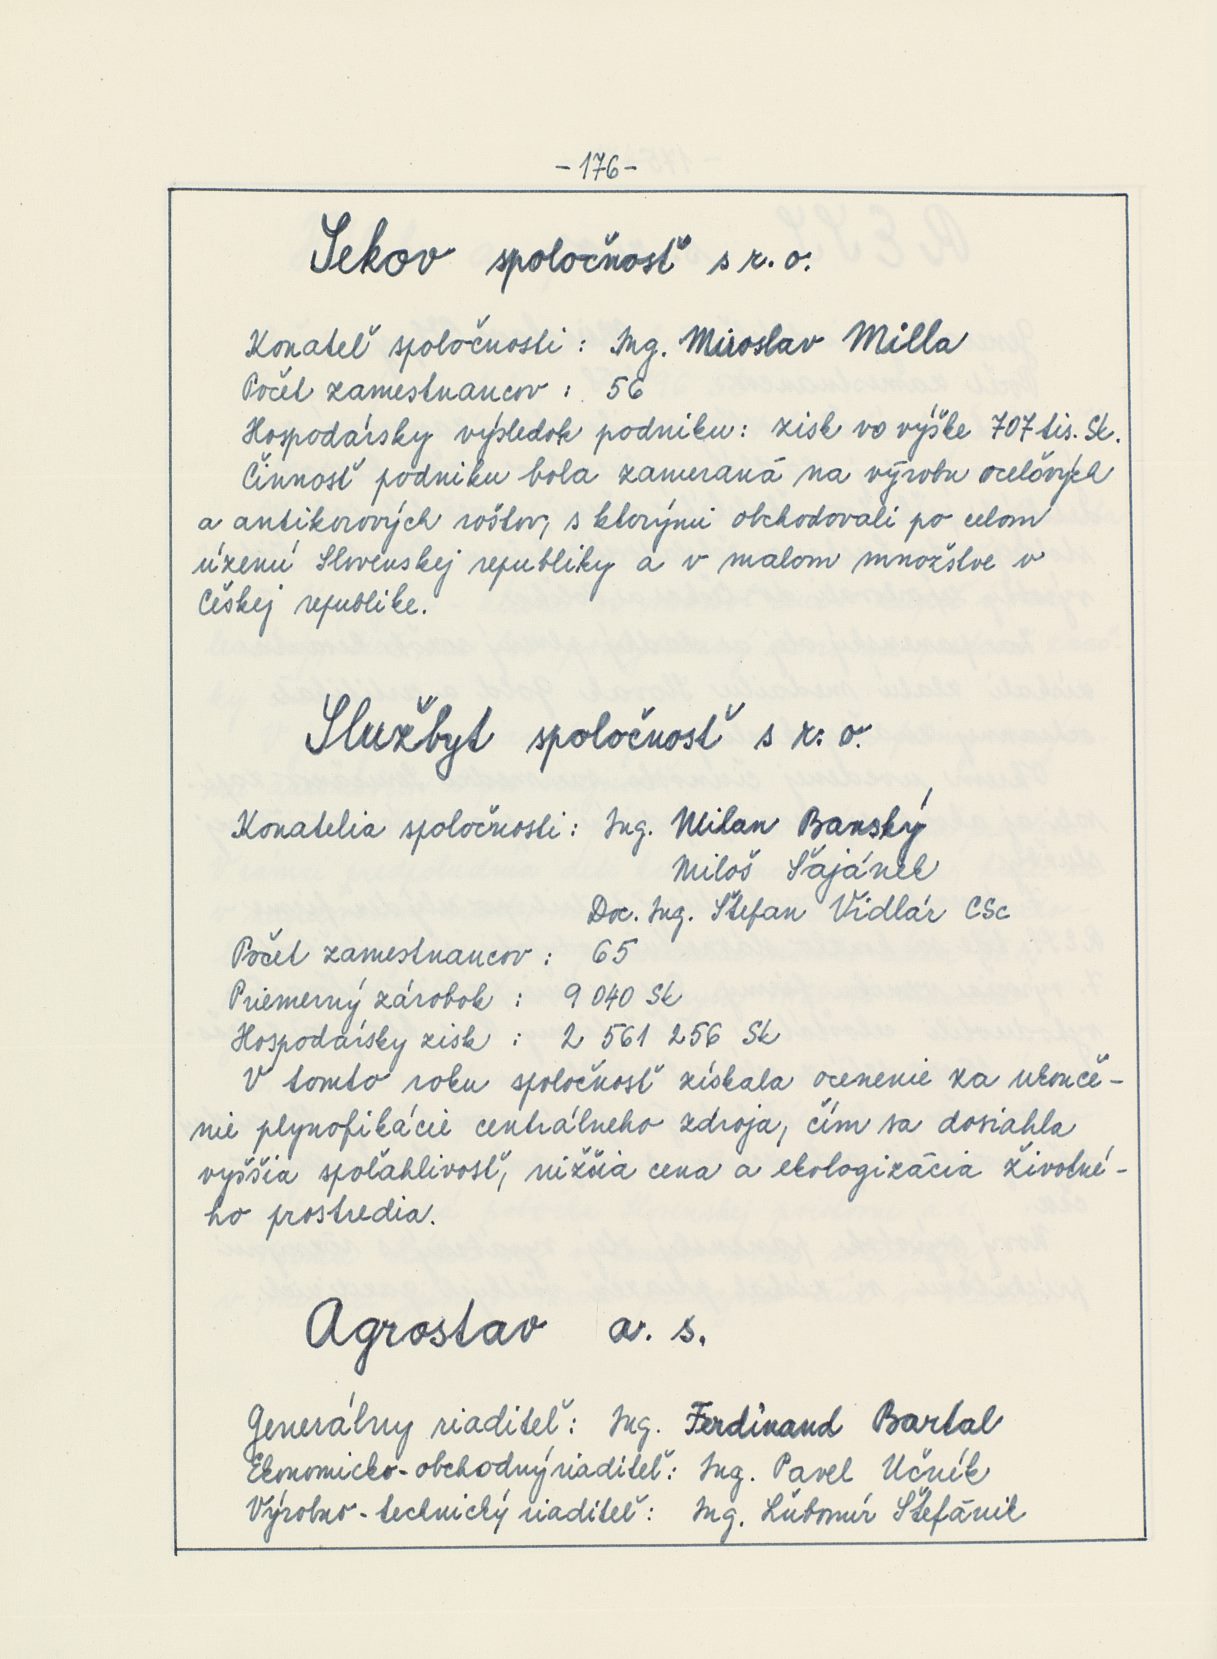 - 176 -
Sekov spoločnosť s r. o.
Konateľ spoločnosti : Ing. Miroslav Milla
Počet zamestnancov : 56
Hospodársky výsledok podniku : zisk vo výške 707 tis. Sk.
Činnosť podniku bola zameraná na výrobu oceľových
a antikorových roštov, s ktorými obchodovali po celom
území Slovenskej republiky a v malom množstve v
Českej republike.
Službyt spoločnosť s r. o.
Konatelia spoločnosti : Ing. Milan Banský
Miloš Šajánek
Doc. Ing. Štefan Vidlár CSc
Počet zamestnancov : 65
Priemerný zárobok : 9 040 Sk
Hospodársky zisk : 2 561 256 Sk
V tomto roku spoločnosť získala ocenenie za ukonče-
nie plynofikácie centrálneho zdroja, čím sa dosiahla
vyššia spoľahlivosť, nižšia cena a ekologizácia životné-
ho prostredia.
Agrostav a. s.
Generálny riaditeľ : Ing. Ferdinand Bartal
Ekonomicko-obchodný riaditeľ : Ing. Pavel Učník
Výrobno-technický riaditeľ : Ing. Ľubomír Štefánik